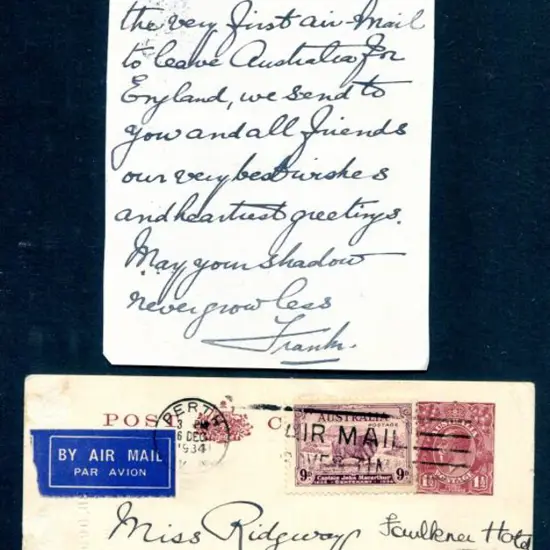 the very first air-Mail
to leave Australia for
England, we send to
you and all friends
our very best wishes
and heartiest greetings.
May your shadow
never grow less
Frank.
POST C
PERTH
3 PM
6 DEC
1934
BY AIR MAIL
PAR AVION
AUSTRALIA
POSTAGE
AIR MAIL
9D 9D
Captain John Macarthur
CENTENARY
POSTAGE
1½ 1½
Miss Ridgway Faulkner Hotel